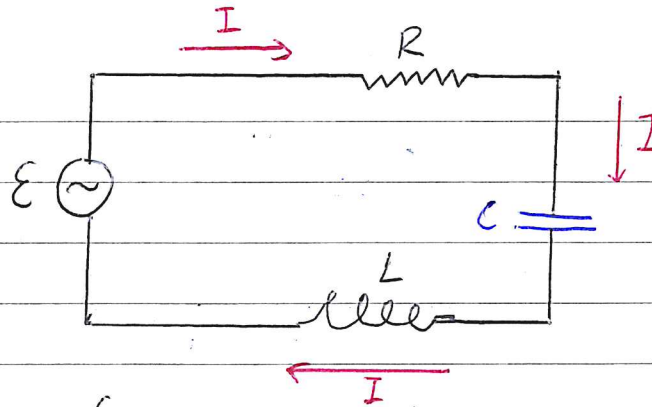 I
R
I
ε
~
C
L
I